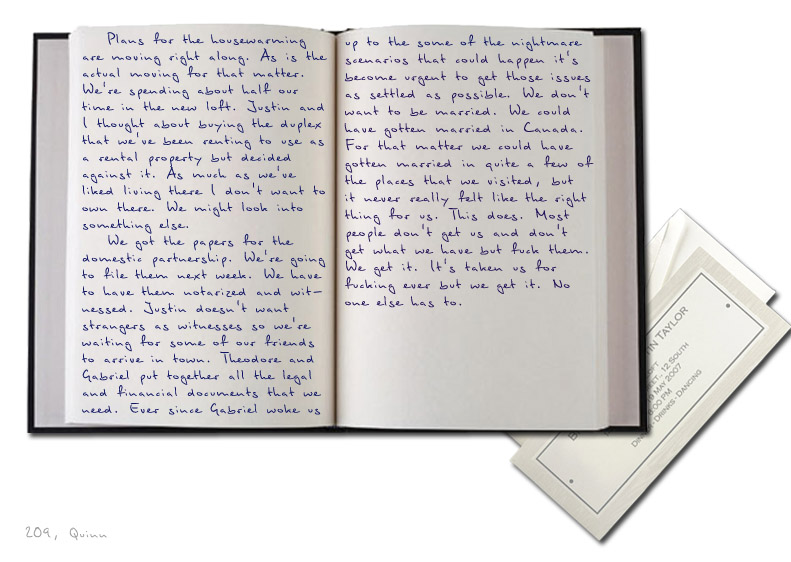 Plans for the housewarming
are moving right along. As is the
actual moving for that matter.
We're spending about half our
time in the new loft. Justin and
I thought about buying the duplex
that we've been renting to use as
a rental property but decided
against it. As much as we've
liked living there I don't want to
own there. We might look into
something else.
We got the papers for the
domestic partnership. We're going
to file them next week. We have
to have them notarized and wit-
nessed. Justin doesn't want
strangers as witnesses so we're
waiting for some of our friends
to arrive in town. Theodore and
Gabriel put together all the legal
and financial documents that we
need. Ever since Gabriel woke us
up to the some of the nightmare
scenarios that could happen it's
become urgent to get those issues
as settled as possible. We don't
want to be married. We could
have gotten married in Canada.
For that matter we could have
gotten married in quite a few of
the places that we visited, but
it never really felt like the right
thing for us. This does. Most
people don't get us and don't
get what we have but fuck them.
We get it. It's taken us for
fucking ever but we get it. No
one else has to.
TAYLOR
12 SOUTH
MAY 2007
PM
Drinks - Dancing
209, Quinn